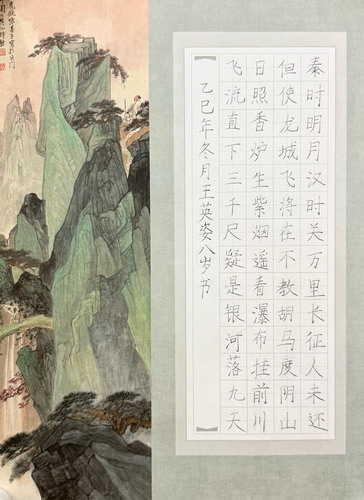 秦时明月汉时关万里长征人未还
但使龙城飞将在不教胡马度阴山
日照香炉生紫烟遥看瀑布挂前川
飞流直下三千尺疑是银河落九天
乙巳年冬月王英姿八岁书